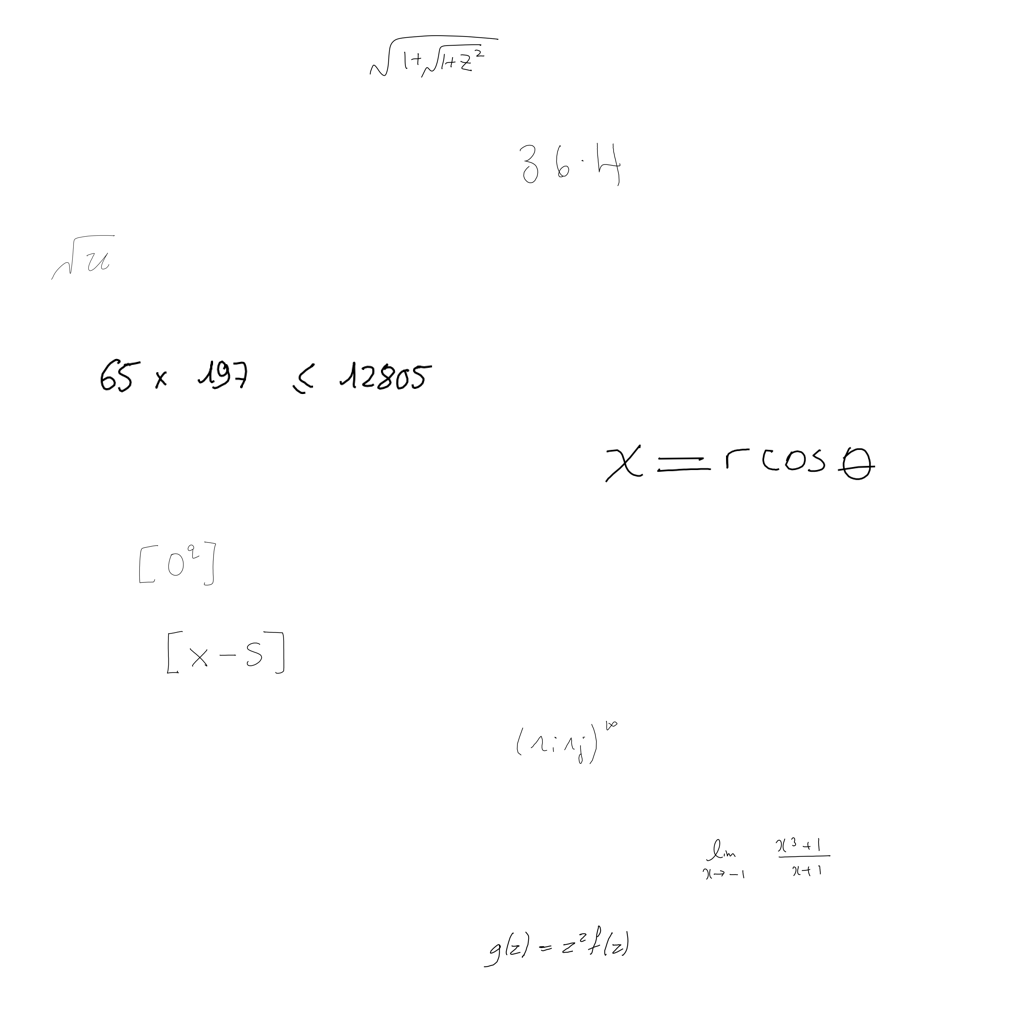 \sqrt{1+\sqrt{1+z^2}}
36.4
\sqrt{u}
65 × 197 ≤ 12805
x = r cos θ
[0^q]
[x-s]
lim_{x→-1} \frac{x^3+1}{x+1}
g(z) = z^2 f(z)